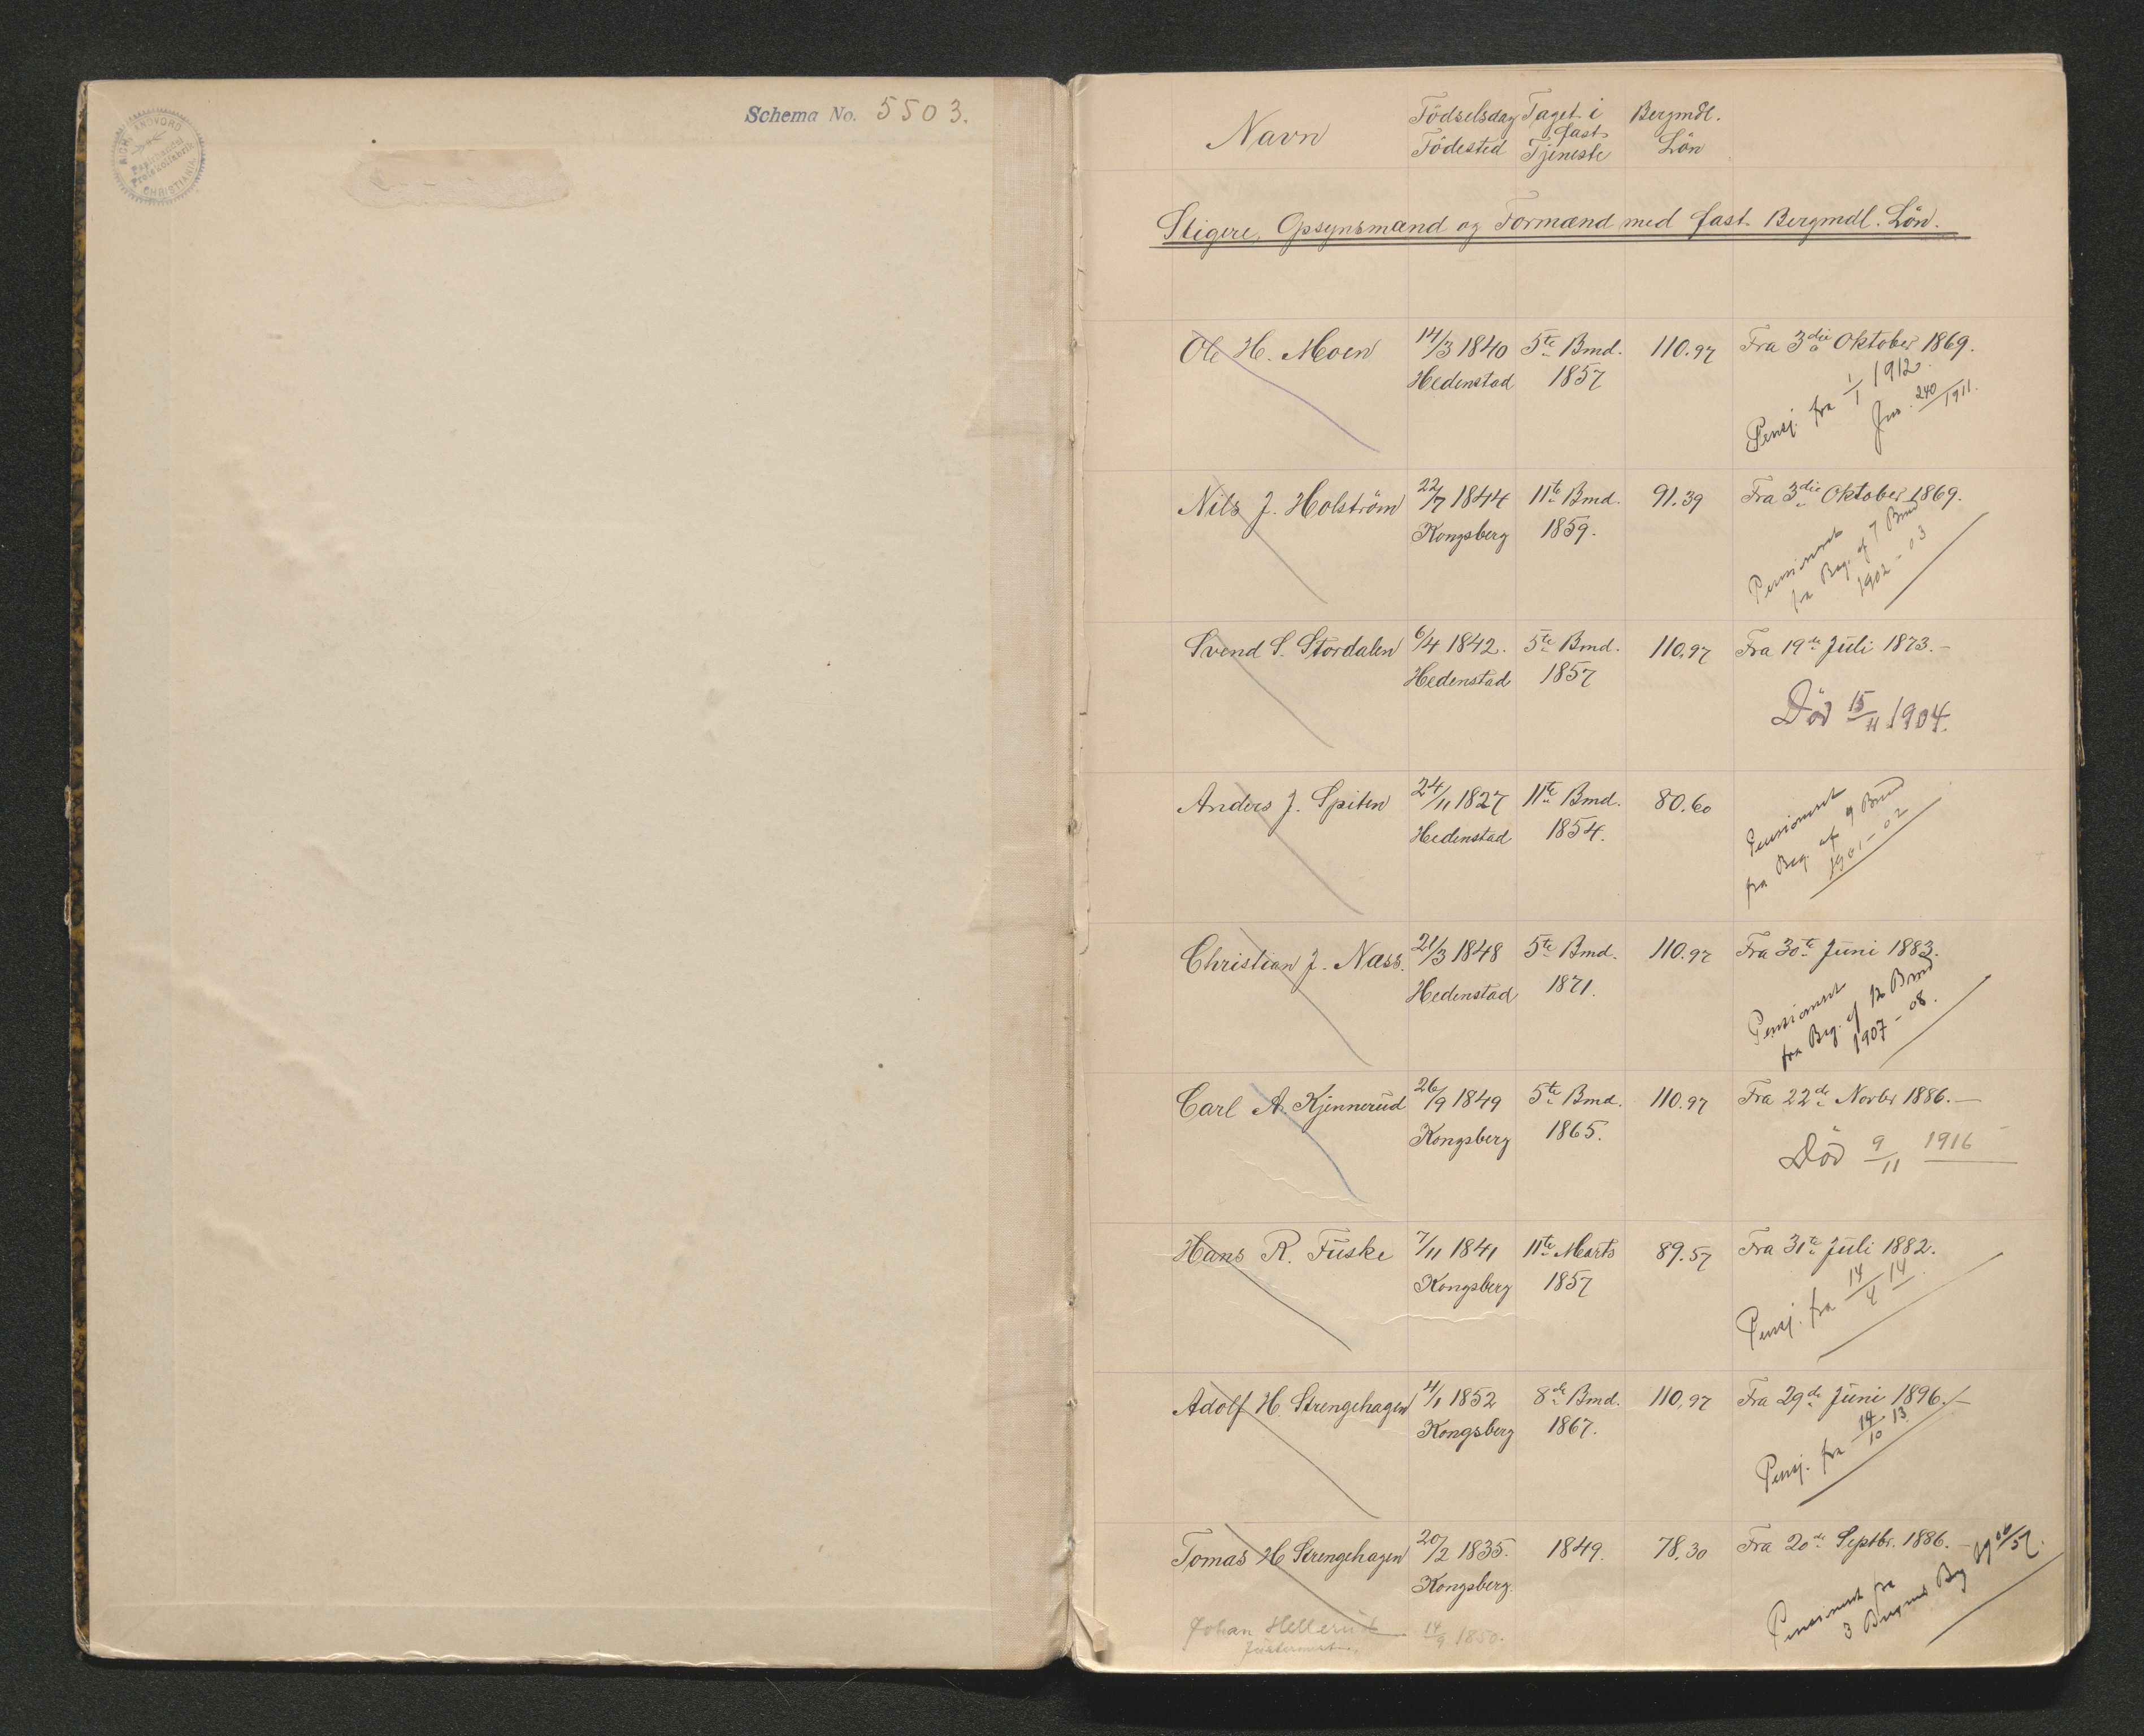 RICH. ANDVORD
Papirhandel
Protokolfabrik
CHRISTIANIA.
Schema No. 5503.
Navn
Födselsdag Taget i Bergmdl.
fast
Födested Tjeneste Lön
Stigere, Opsynsmænd og Formænd med fast Bergmdl. Lön.
Ole H. Moen 14/3 1840 5te Bmd. 110.97 Fra 3die Oktober 1869.
Hedenstad 1857
Pensj. fra 1/1 1912.
Jno. 240/1911.
Nils J. Holström 22/7 1844 11te Bmd. 91.39 Fra 3die Oktober 1869.
Kongsberg 1859.
Pensioneret
fra Beg. af 7 Bmd
1902-03
Svend S. Stordalen 6/4 1842. 5te Bmd. 110.97 Fra 19de Juli 1873.-
Hedenstad 1857
Död 15/11 1904.
Anders J. Spiten 24/11 1827 11te Bmd. 80.60
Hedenstad 1854.
Pensioneret
fra Beg. af 9 Bmd
1901-02
Christian J. Næss. 21/3 1848 5te Bmd. 110.97 Fra 30te Juni 1883.
Hedenstad 1871.
Pensioneret
fra Beg. af 12 Bmd
1907-08.
Carl A. Kjennerud 26/9 1849 5te Bmd. 110.97 Fra 22de Novbr 1886.-
Kongsberg 1865.
Död 9/11 1916
Hans R. Fuske 7/11 1841 11te Marts 89.57 Fra 31te Juli 1882.
Kongsberg 1857
Pensj. fra 14/4 14
Adolf H. Strengehagen 4/1 1852 8de Bmd. 110.97 Fra 29de Juni 1896.-
Kongsberg 1867.
Pensj. fra 14/10 13
Tomas H Strengehagen 20/2 1835. 1849. 78.30 Fra 20de Septbr. 1886.-
Kongsberg.
Pensioneret fra
3 Bergmd Beg 1906/07.
Johan Hellerud 14/9 1850.